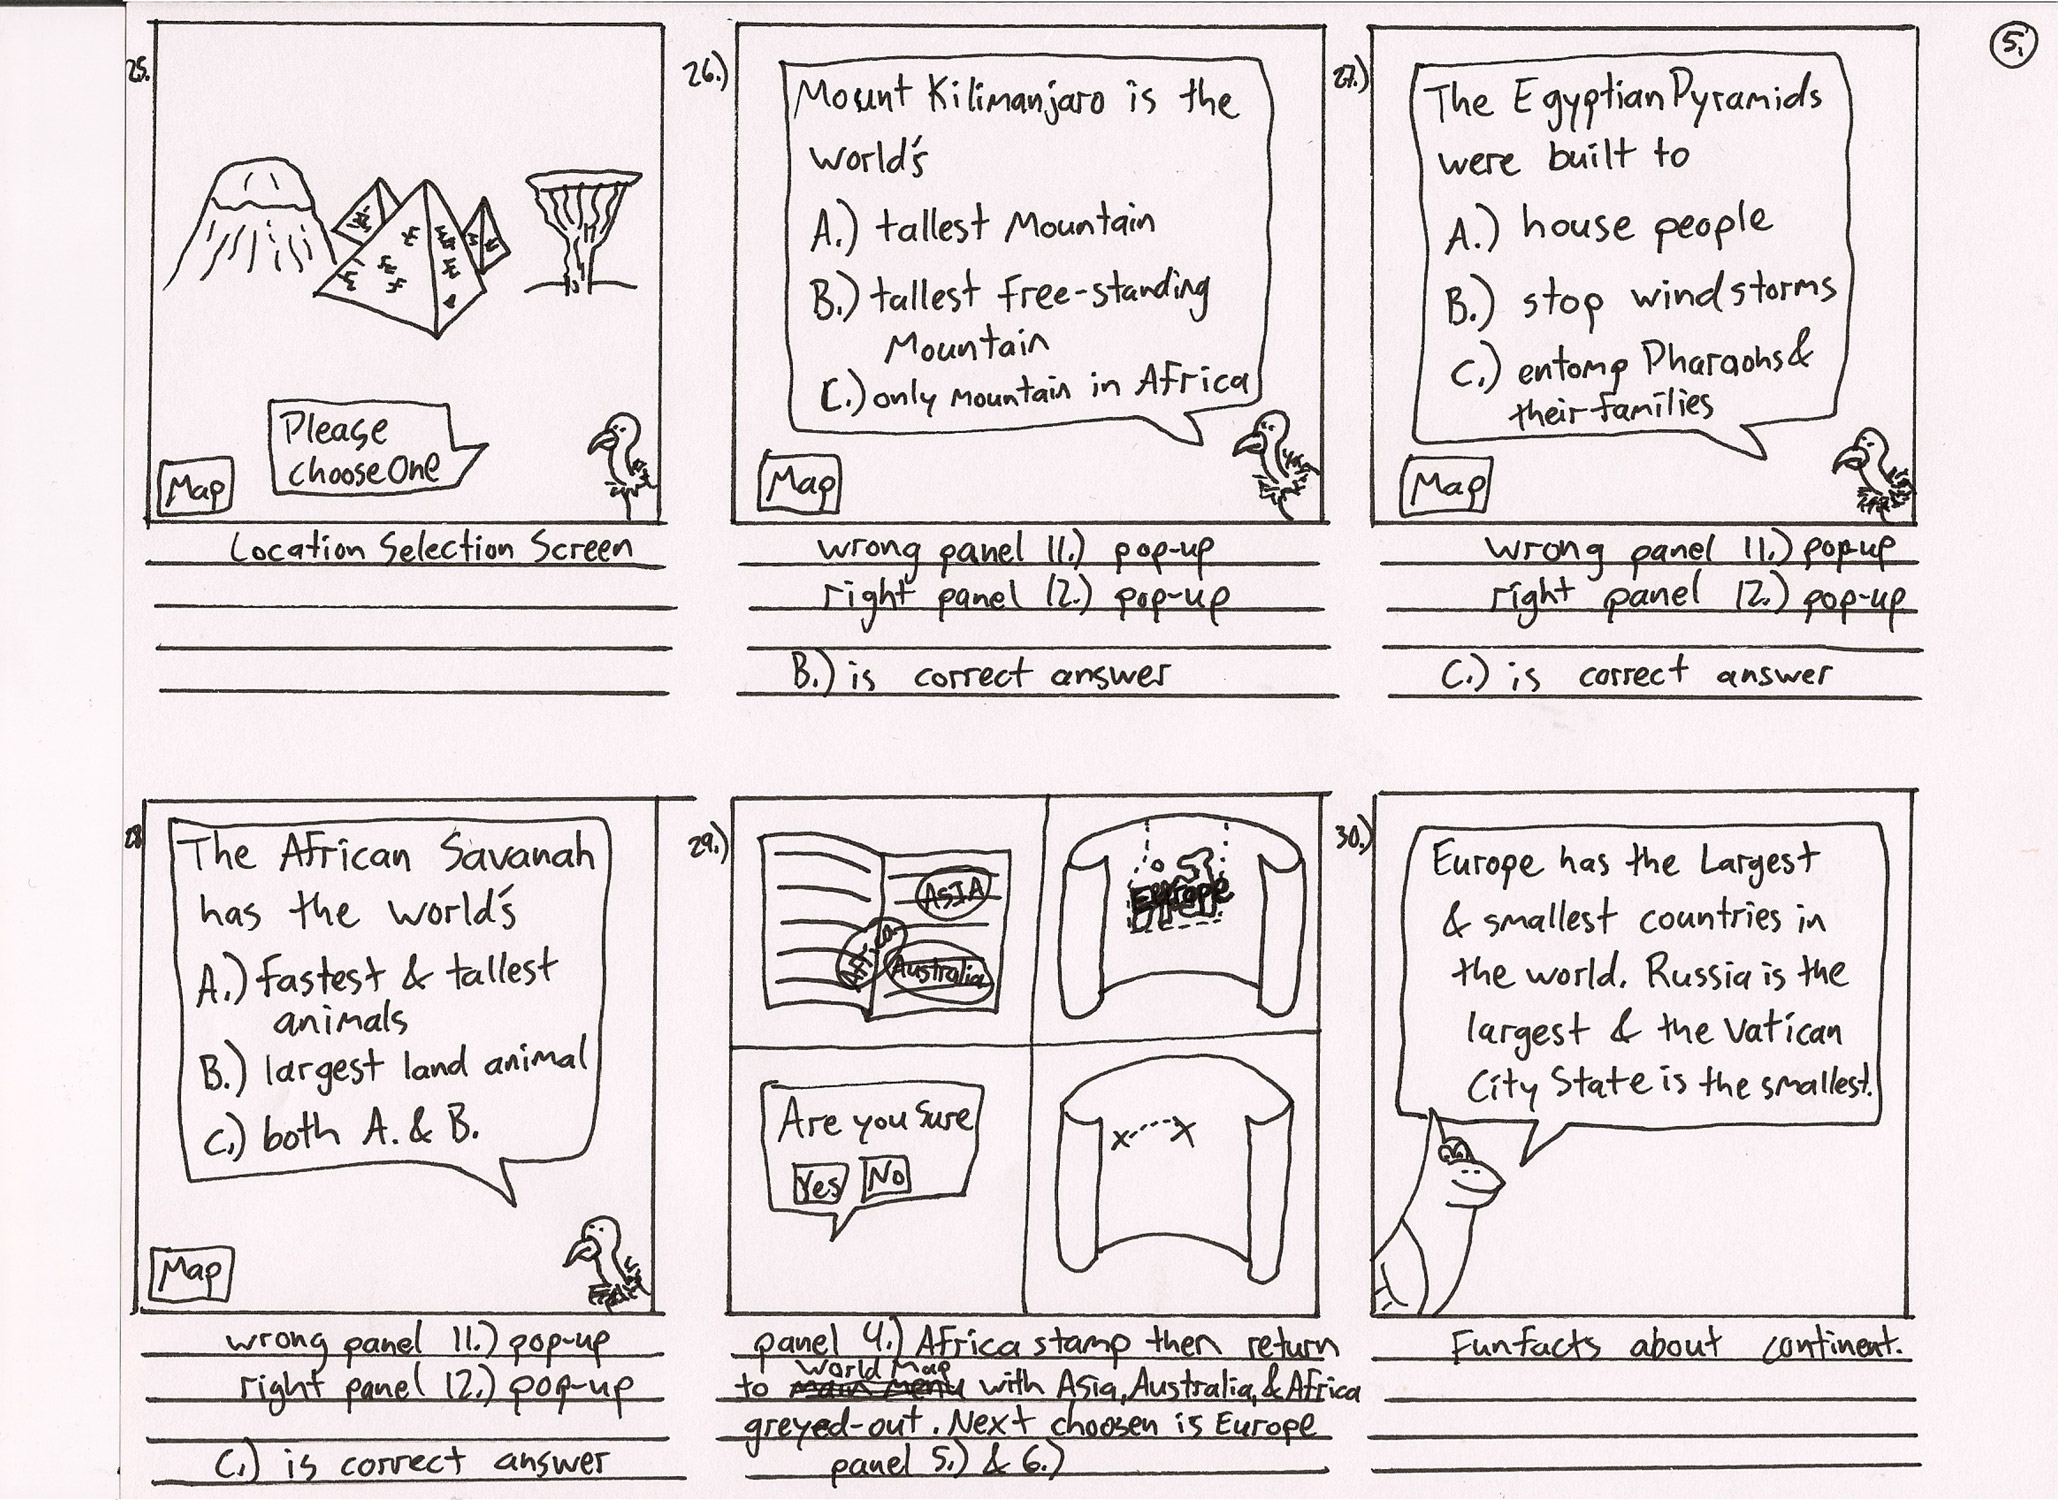 5.
25.
Please
choose One
Map
Location Selection Screen
26.)
Mount Kilimanjaro is the
world's
A.) tallest Mountain
B.) tallest free-standing
Mountain
C.) only mountain in Africa
Map
wrong panel 11.) pop-up
right panel 12.) pop-up
B.) is correct answer
27.)
The Egyptian Pyramids
were built to
A.) house people
B.) stop wind storms
C.) entomp Pharaohs &
their families
Map
wrong panel 11.) pop-up
right panel 12.) pop-up
C.) is correct answer
28
The African Savanah
has the world's
A.) fastest & tallest
animals
B.) largest land animal
C.) both A. & B.
Map
wrong panel 11.) pop-up
right panel 12.) pop-up
C.) is correct answer
29.)
ASIA
Africa
Australia
Europe
Are you Sure
Yes No
panel 4.) Africa stamp then return
World Map
to main menu with Asia, Australia, & Africa
greyed-out. Next choosen is Europe
panel 5.) & 6.)
30.)
Europe has the Largest
& smallest countries in
the world. Russia is the
largest & the Vatican
City State is the smallest.
Fun facts about continent.